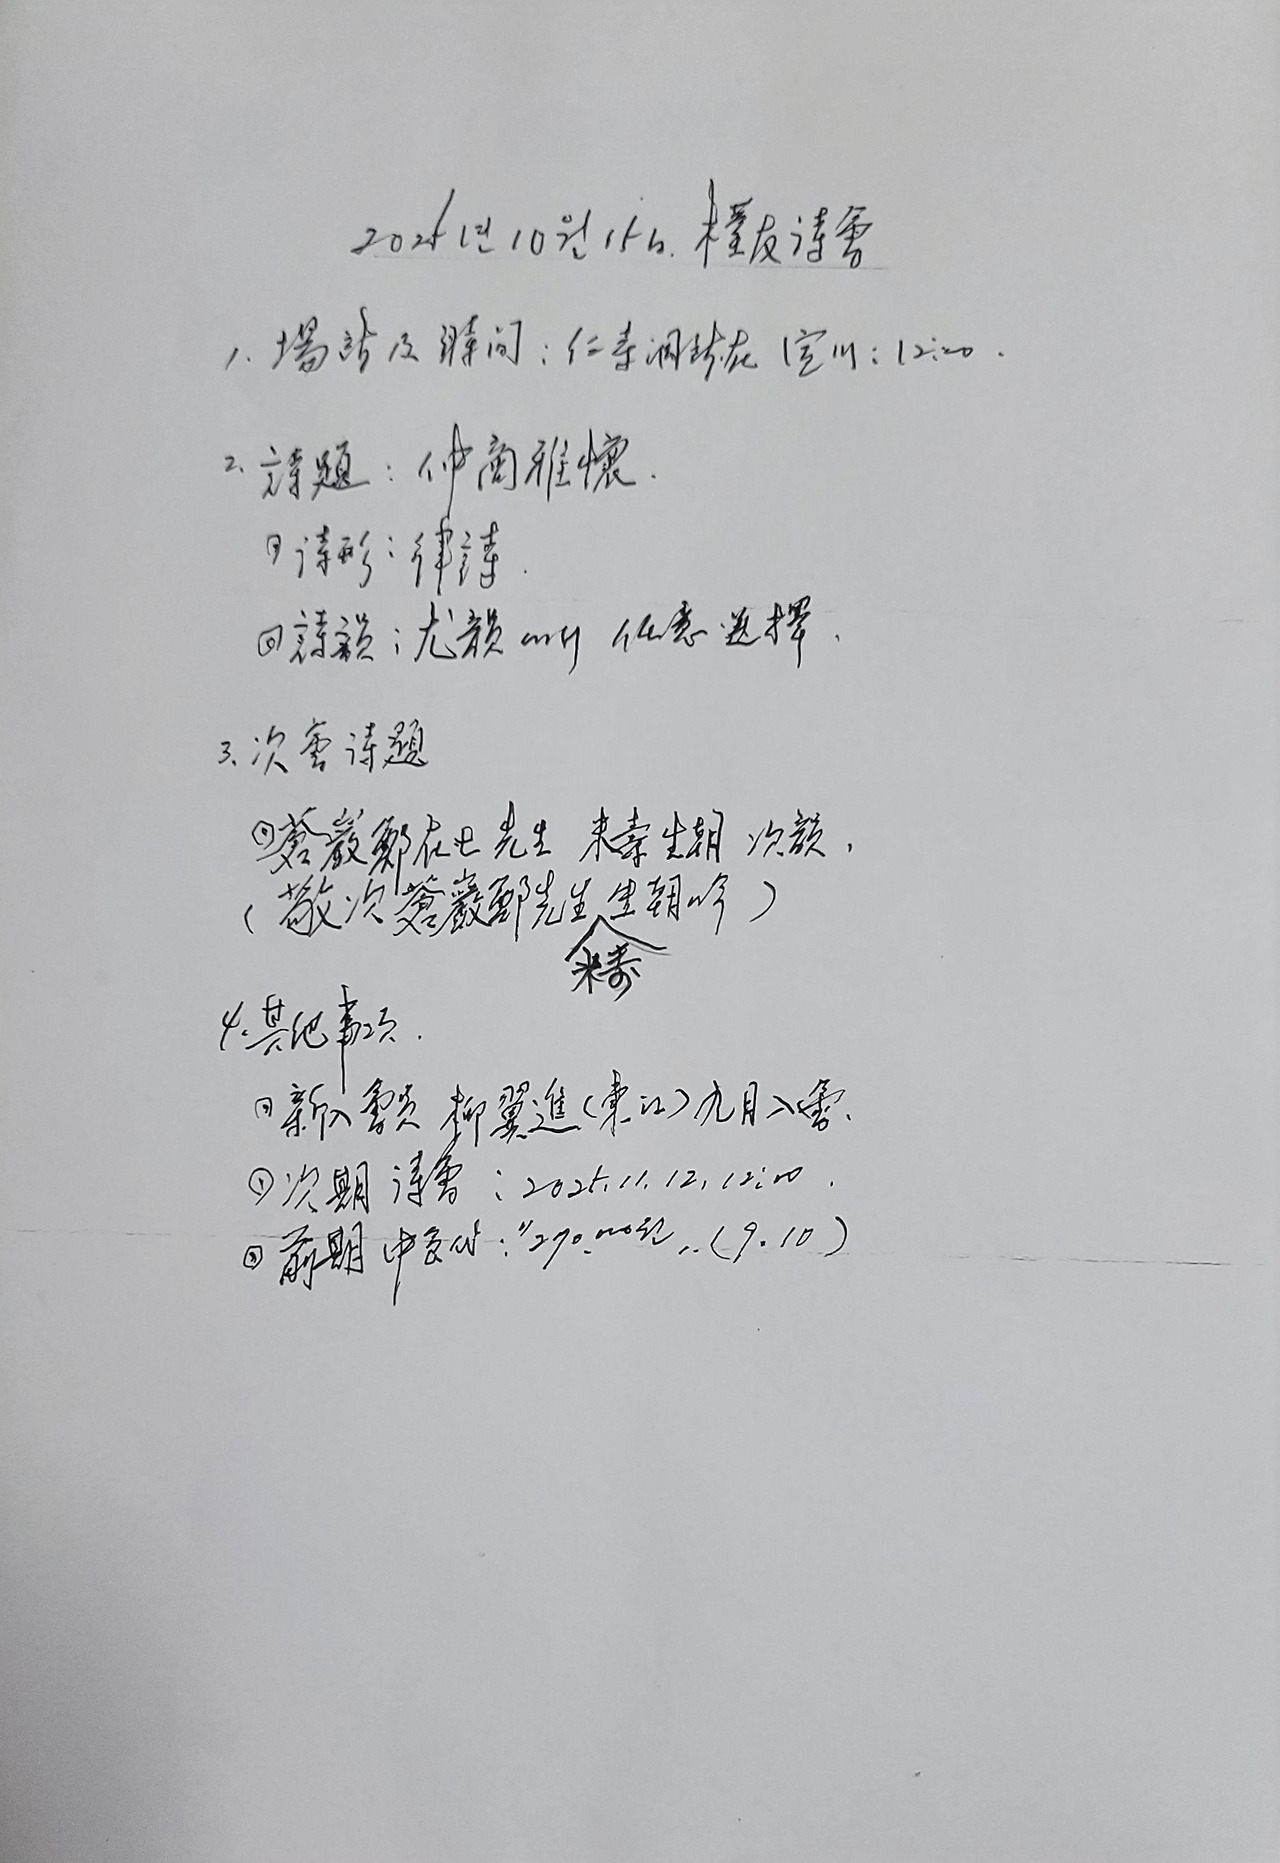 2025년 10월 15일. 樸友诗會
1. 場所 及 時间 : 仁寺洞 12:00.
2. 詩題 : 仲商雅懷.
① 诗形 : 律詩.
② 詩韻 : 尤韻에서 任意 選擇.
3. 次會 诗題
① 蒼巖鄭在七先生 米壽生朝 次韻.
(敬次蒼巖鄭先生米壽生朝吟)
4. 其他事項.
① 新入會员 柳翼進(東江) 九月入會.
② 次期 诗會 : 2025.11.12. 12:00.
③ 前期 中食代 : 290,000원. (9.10)